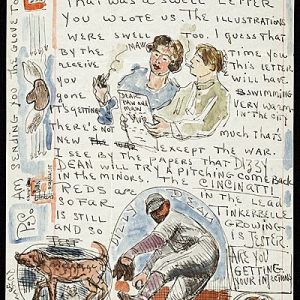 THAT WAS A SWELL LETTER
YOU WROTE US. THE ILLUSTRATIONS
WERE SWELL TOO. I GUESS THAT
BY THE TIME YOU
RECEIVE THIS LETTER
YOU WILL HAVE
GONE SWIMMING
IT'S GETTING VERY WARM
IN THE CITY
THERE'S NOT MUCH THAT'S
NEW EXCEPT THE WAR.
I SEE BY THE PAPERS THAT DIZZY
DEAN WILL TRY A PITCHING COME BACK
IN THE MINORS. THE CINCINATTI
REDS ARE IN THE LEAD
SO FAR TINKERBELLE
IS STILL GROWING
AND SO IS JESTER.
ARE YOU
GETTING
YOUR INJECTIONS
MAW
DEAR
PAW AND
MAW
DIZZY
JEST
P.S. AM SENDING YOU THE GLOVE